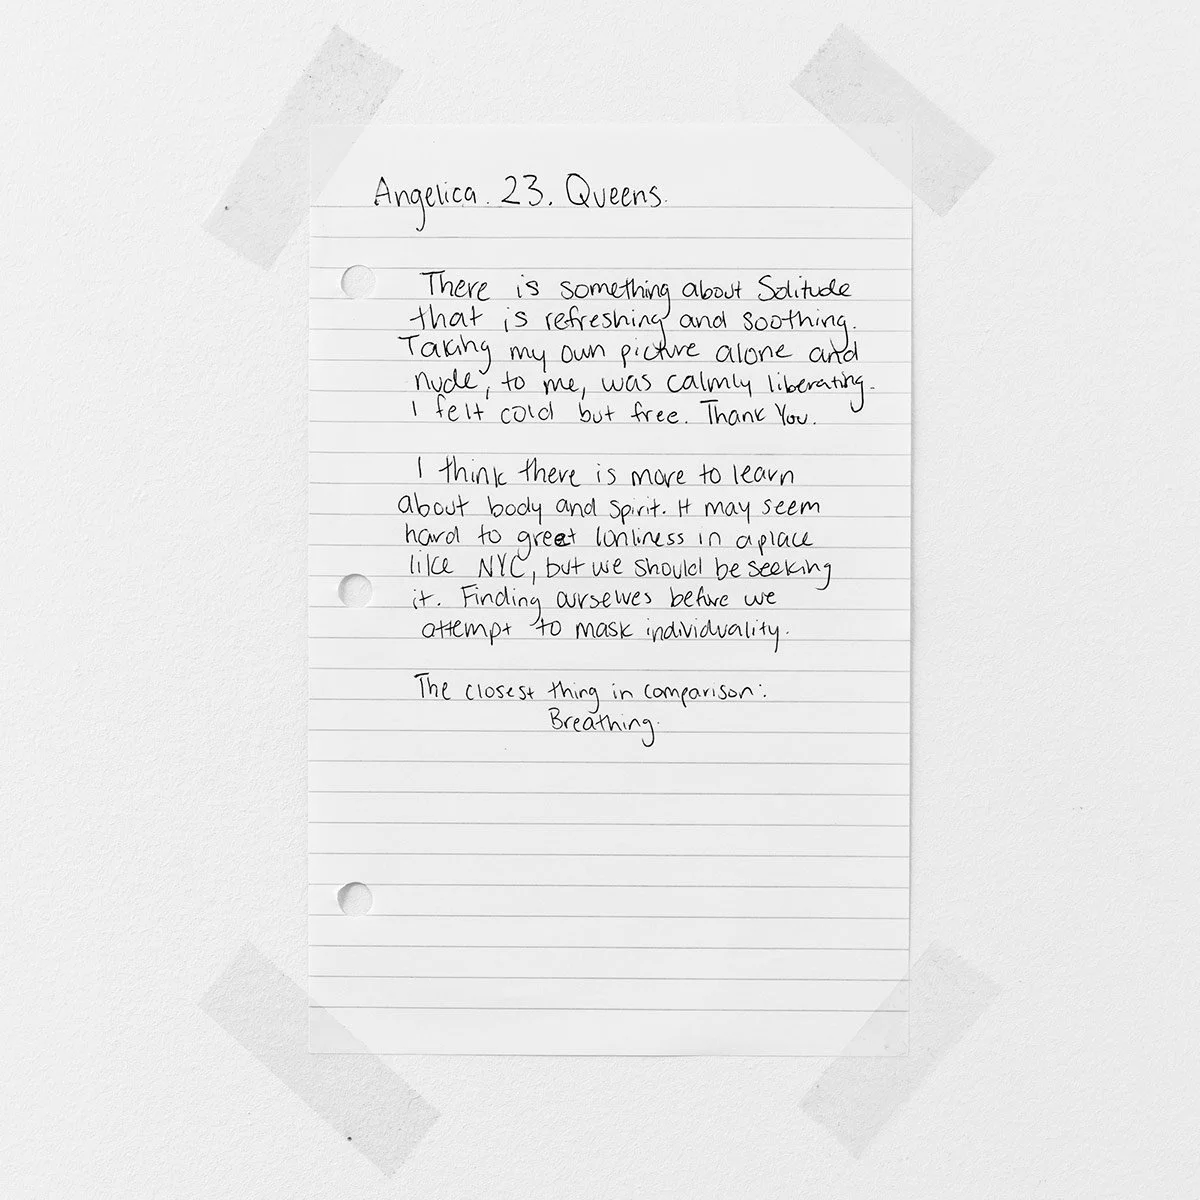 Angelica. 23. Queens.
There is something about Solitude
that is refreshing and soothing.
Taking my own picture alone and
nude, to me, was calmly liberating.
I felt cold but free. Thank You.
I think there is more to learn
about body and spirit. It may seem
hard to greet lonliness in a place
like NYC, but we should be seeking
it. Finding ourselves before we
attempt to mask individuality.
The closest thing in comparison:
Breathing.